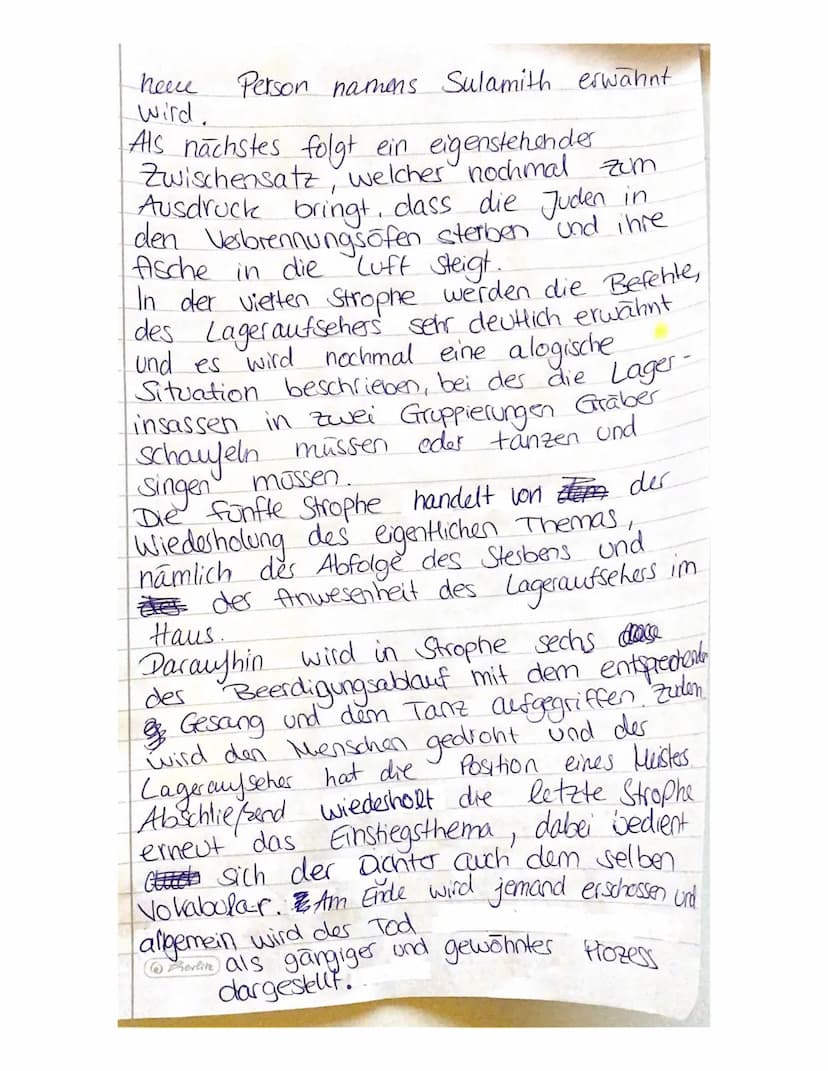 neue Person namens Sulamith erwähnt
wird.
Als nächstes folgt ein eigenstehender
Zwischensatz, welcher nochmal zum
Ausdruck bringt, dass die Juden in
den Verbrennungsöfen sterben und ihre
Asche in die Luft steigt.
In der vierten Strophe werden die Befehle,
des Lageraufsehers sehr deutlich erwähnt
und es wird nochmal eine alogische
Situation beschrieben, bei der die Lager-
insassen in zwei Gruppierungen Gräber
schaufeln müssen oder tanzen und
singen müssen.
Die fünfte Strophe handelt von der
Wiederholung des eigentlichen Themas,
nämlich der Abfolge des Sterbens und
der Anwesenheit des Lageraufsehers im
Haus.
Daraufhin wird in Strophe sechs
der Beerdigungsablauf mit dem entsprechenden
Gesang und dem Tanz aufgegriffen. Zudem
wird den Menschen gedroht und der
Lageraufseher hat die Position eines Meisters
Abschließend wiederholt die letzte Strophe
erneut das Einstiegsthema, dabei bedient
sich der Dichter auch dem selben
Vokabular. Am Ende wird jemand erschossen und
allgemein wird der Tod
als gängiger und gewöhntes Prozess
dargestellt.